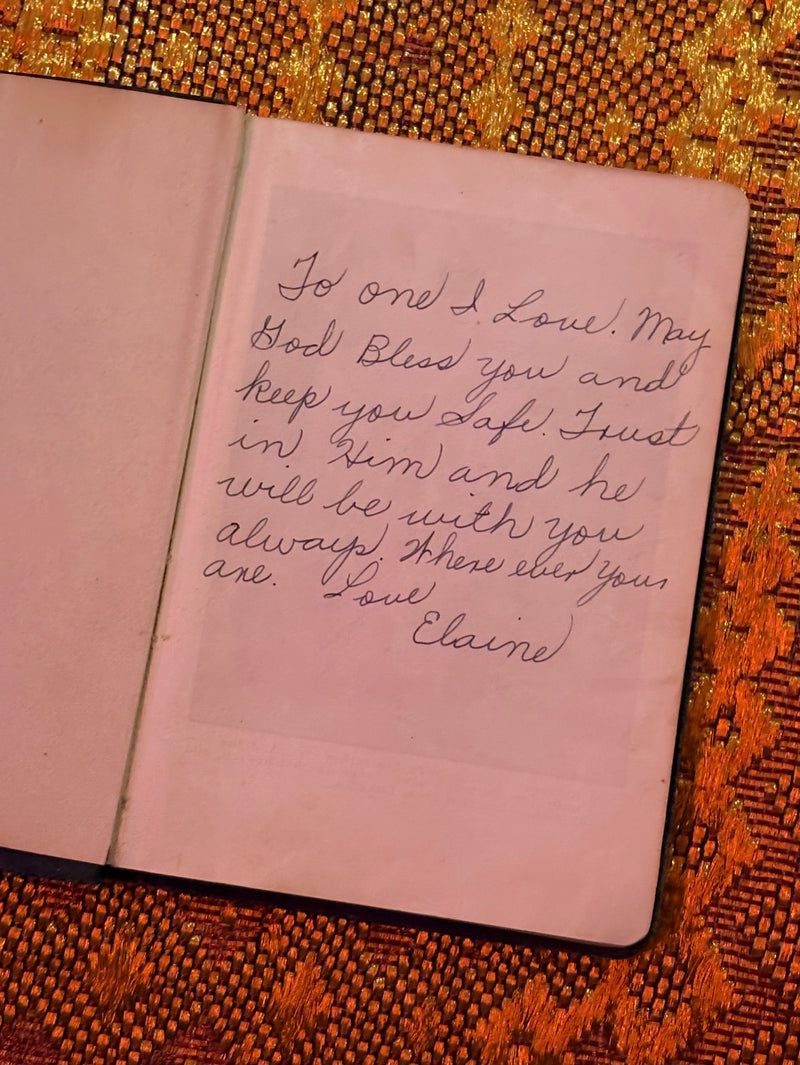 To one I Love. May
God Bless you and
keep you Safe. Trust
in Him and he
will be with you
always. Where ever your
are. Love
Elaine